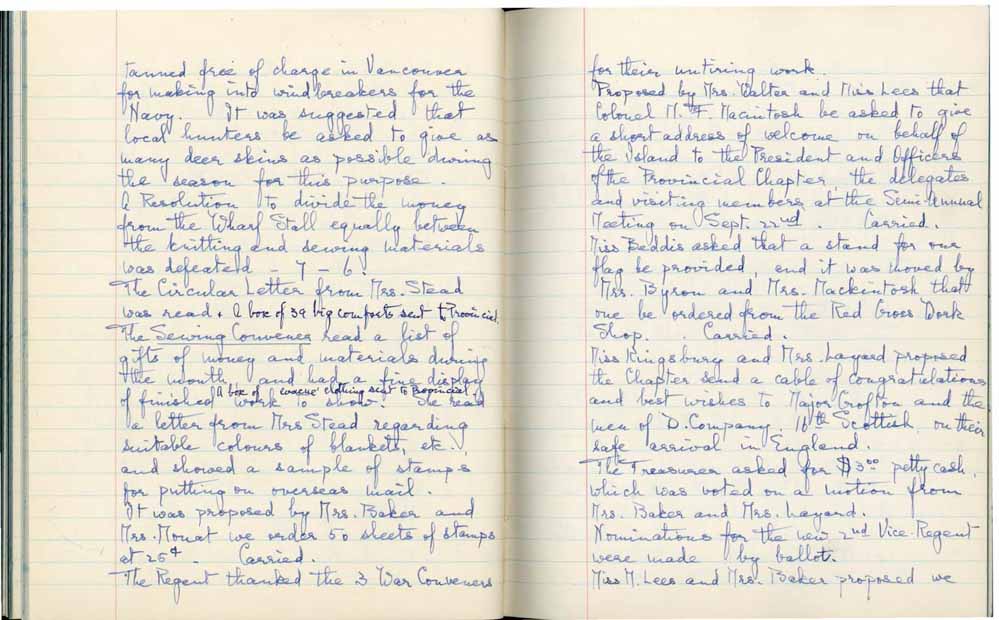 tanned free of charge in Vancouver
for making into windbreakers for the
Navy. It was suggested that
local hunters be asked to give as
many deer skins as possible during
the season for this purpose.
A Resolution to divide the money
from the Wharf Stall equally between
the knitting and sewing materials
was defeated - 7 - 6.
The Circular Letter from Mrs. Stead
was read. A box of 39 big comforts sent to Provincial.
The Sewing Convener read a list of
gifts of money and materials during
the month, and had a fine display
A box of evacue clothing sent to Provincial.
of finished work to show. She read
a letter from Mrs Stead regarding
suitable colours of blankets, etc.,
and showed a sample of stamps
for putting on overseas mail.
It was proposed by Mrs. Baker and
Mrs. Mouat we order 50 sheets of stamps
at 25¢. Carried.
The Regent thanked the 3 War Conveners
for their untiring work.
Proposed by Mrs. Walter and Miss Lees that
Colonel M. F. Macintosh be asked to give
a short address of welcome on behalf of
the Island to the President and Officers
of the Provincial Chapter, the delegates
and visiting members, at the Semi-Annual
Meeting on Sept. 22nd. Carried.
Miss Beddis asked that a stand for our
flag be provided, and it was moved by
Mrs. Byron and Mrs. Mackintosh that
one be ordered from the Red Cross Work
Shop. Carried.
Miss Kingsbury and Mrs. Layard proposed
the Chapter send a cable of congratulations
and best wishes to Major Crofton and the
men of D. Company, 16th Scottish, on their
safe arrival in England.
The Treasurer asked for $3.00 petty cash,
which was voted on a motion from
Mrs. Baker and Mrs. Layard.
Nominations for the new 2nd Vice-Regent
were made by ballot.
Miss M. Lees and Mrs. Baker proposed we